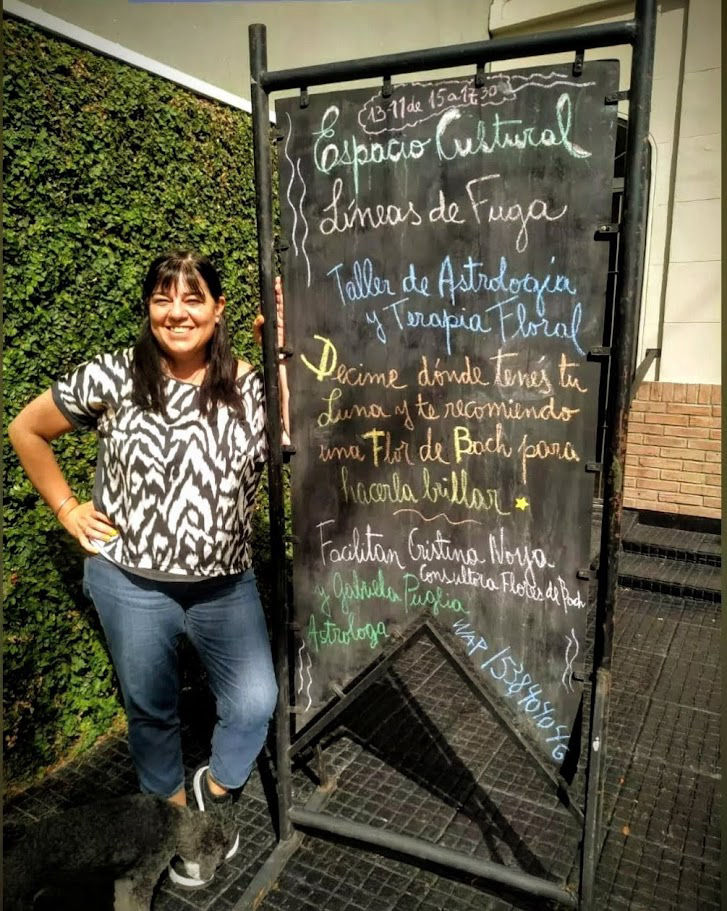 13-11 de 15 a 17:30
Espacio Cultural
Líneas de Fuga
Taller de Astrología
y Terapia Floral
Decime dónde tenés tu
Luna y te recomiendo
una Flor de Bach para
hacerla brillar
Facilitan Cristina Noya
Consultora Flores de Bach
y Gabriela Puglia
Astróloga
WAP 1538404046